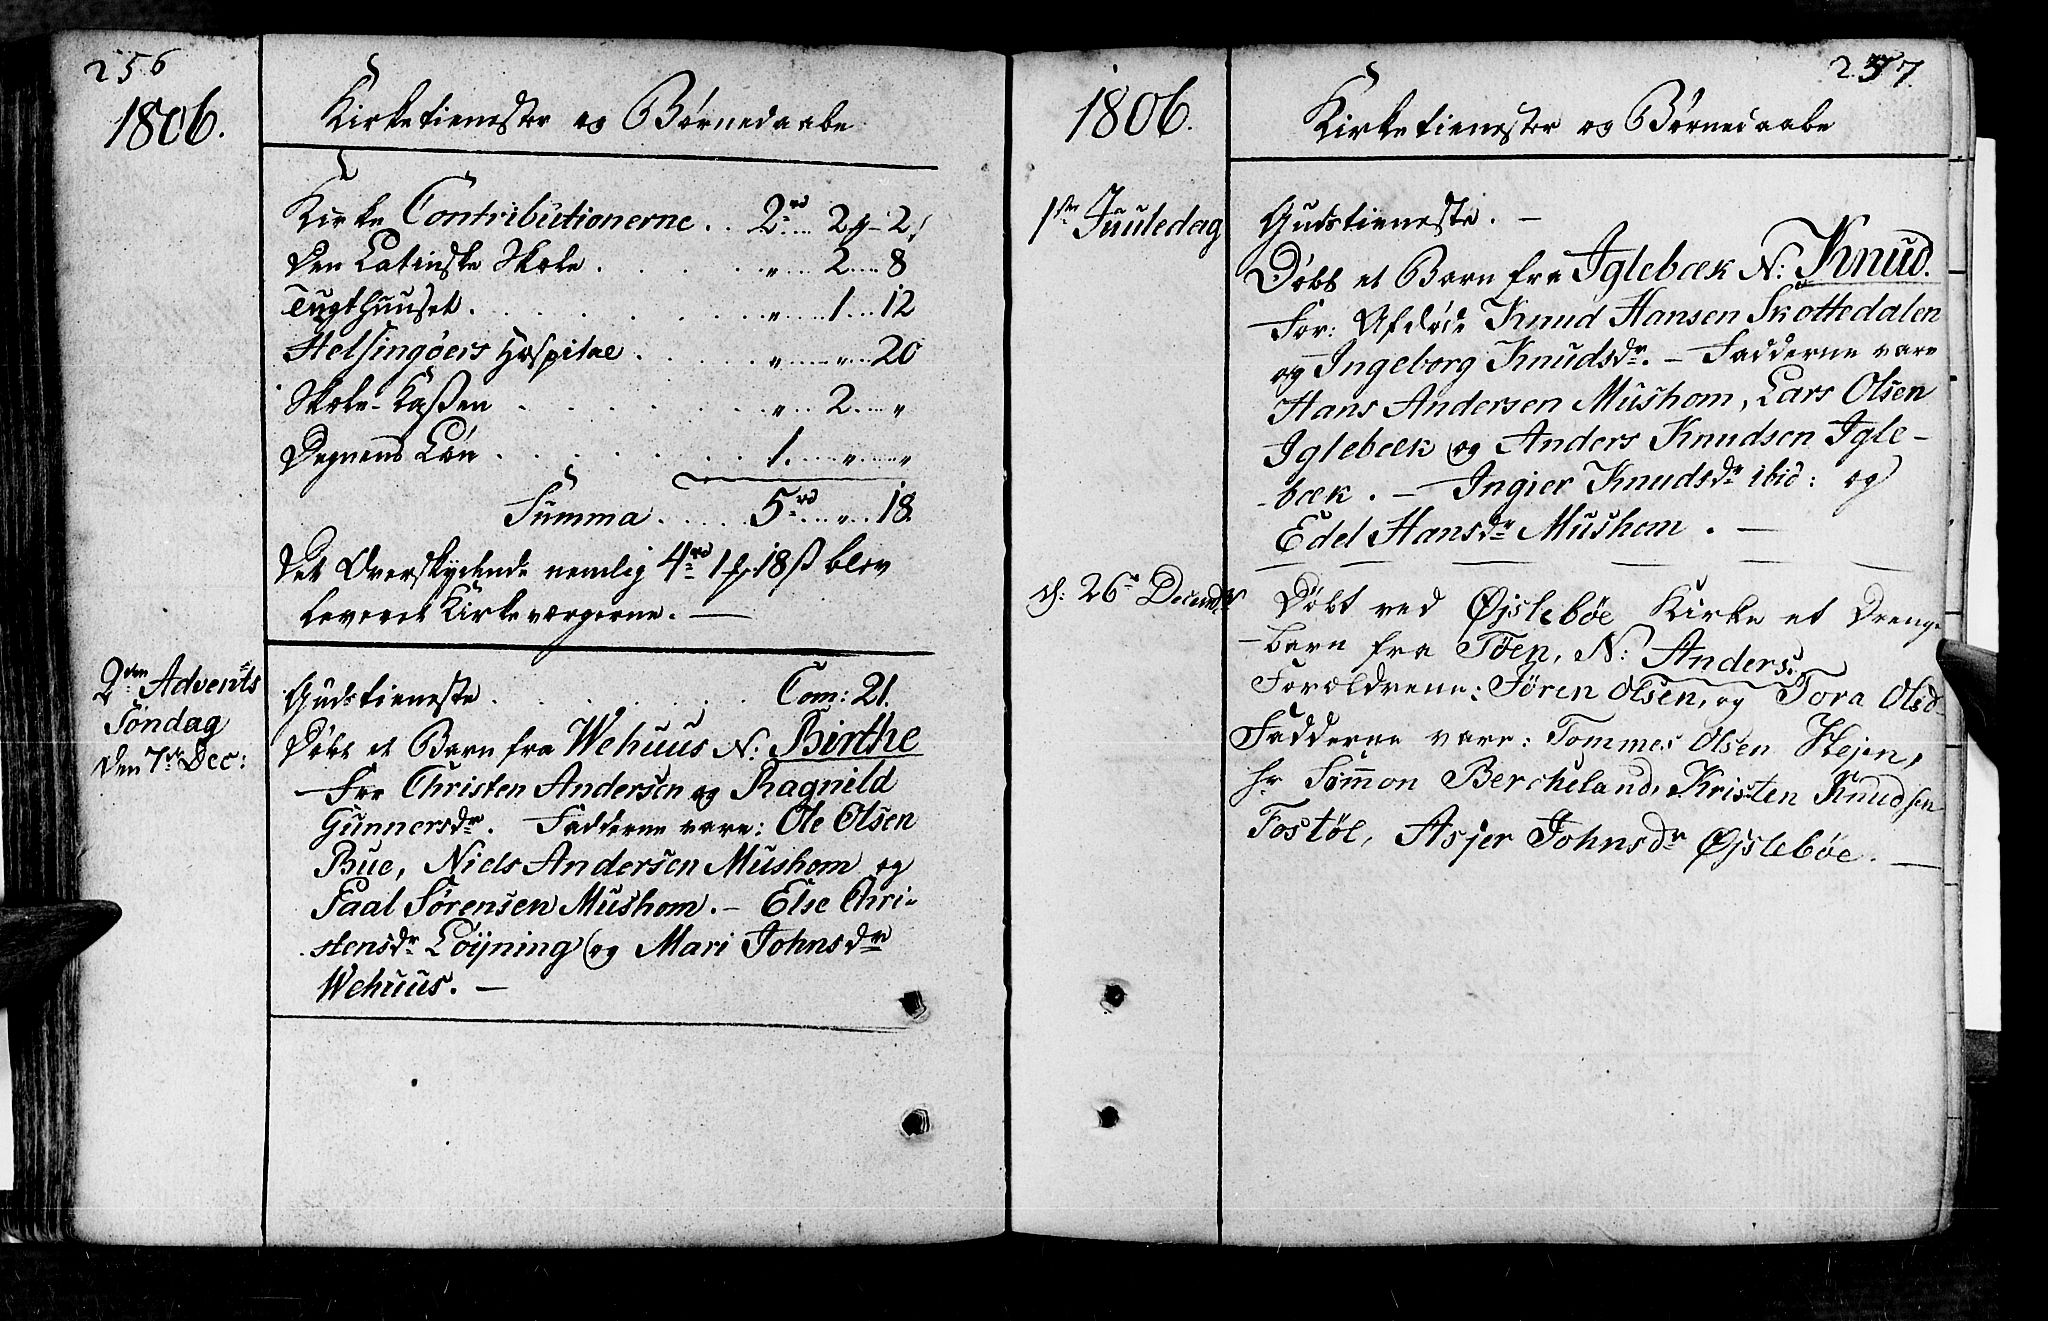 256
1806.
Kirketienester og Børnedaabe
Kirke Contributionerne . . 2rd .... 2 – 2
Den Latinske Skole . . . . . „ .... 2 .... 8
Tugthuuset . . . . . . „ .... 1 .... 12
Helsingøers Hospital . . . . „ .... „ .... 20
Skole-Kaßen . . . . . . „ .... 2 .... „
Degnens Løn . . . . . . 1 .... „ .... „
Summa ..... 5rd .... „ .. 18.
Det Overskydende nemlig 4rd 1 18ß blev
leveret Kirkeværgerne. —
2den Advents
Søndag
den 7de Dec:
Gudstieneste . . . . . . Com: 21.
Døbt et Barn fra Wehuus N: Birthe
For Christen Andersen og Ragnild
Gunnersdr. Fadderne vare: Ole Olsen
Bue, Niels Andersen Mushom og
Paal Sørensen Mushom. – Else Chri-
stensdr Løijning og Mari Johnsdr
Wehuus. —
257.
1806.
Kirketienester og Børnedaabe
1ste Juuledag
Gudstieneste. –
Døbt et Barn fra Iglebæk N: Knud.
For: Afdøde Knud Hansen Skottedalen
og Ingeborg Knudsdr. – Fadderne vare
Hans Andersen Mushom, Lars Olsen
Iglebæk og Anders Knudsen Igle-
-bæk. – Ingier Knudsdr ibid: og
Edel Hansdr Mushom. —
d: 26de Decembr
Døbt ved Øjslebøe Kirke et Drenge
-barn fra Töen, N: Anders.
Forældrene: Sören Olsen, og Tora Olsd
Fadderne vare: Tommes Olsen Hejen,
hr Sømmon Bercheland, Kristen Knudsen
Fostöl, Asjer Johnsdr Øjslebøe. —